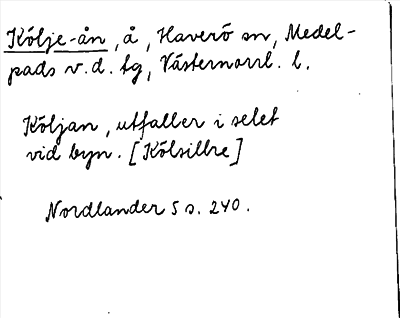 Kölje-ån, å, Haverö sn, Medel-
pads v.d. tg, Västernorrl. l.
Köljan, utfaller i selet
vid byn. [Kölsillre]
Nordlander 5 s. 240.